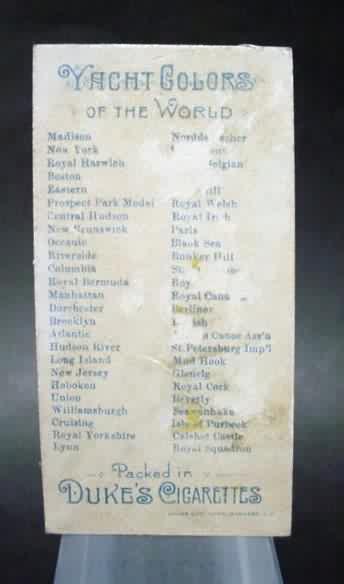 YACHT COLORS
OF THE WORLD
Madison
New York
Royal Harwich
Boston
Eastern
Prospect Park Model
Central Hudson
New Brunswick
Oceanic
Riverside
Columbia
Royal Bermuda
Manhattan
Dorchester
Brooklyn
Atlantic
Hudson River
Long Island
New Jersey
Hoboken
Union
Williamsburgh
Cruising
Royal Yorkshire
Lynn
Royal Welsh
Royal
Paris
Black Sea
Bunker Hill
Royal
Berliner
Canoe Ass'n
St. Petersburg Imp'l
Mud Hook
Glenelg
Royal Cork
Beverly
Seawanhaka
Isle of Purbeck
Calshot Castle
Royal Squadron
Packed in
DUKE'S CIGARETTES